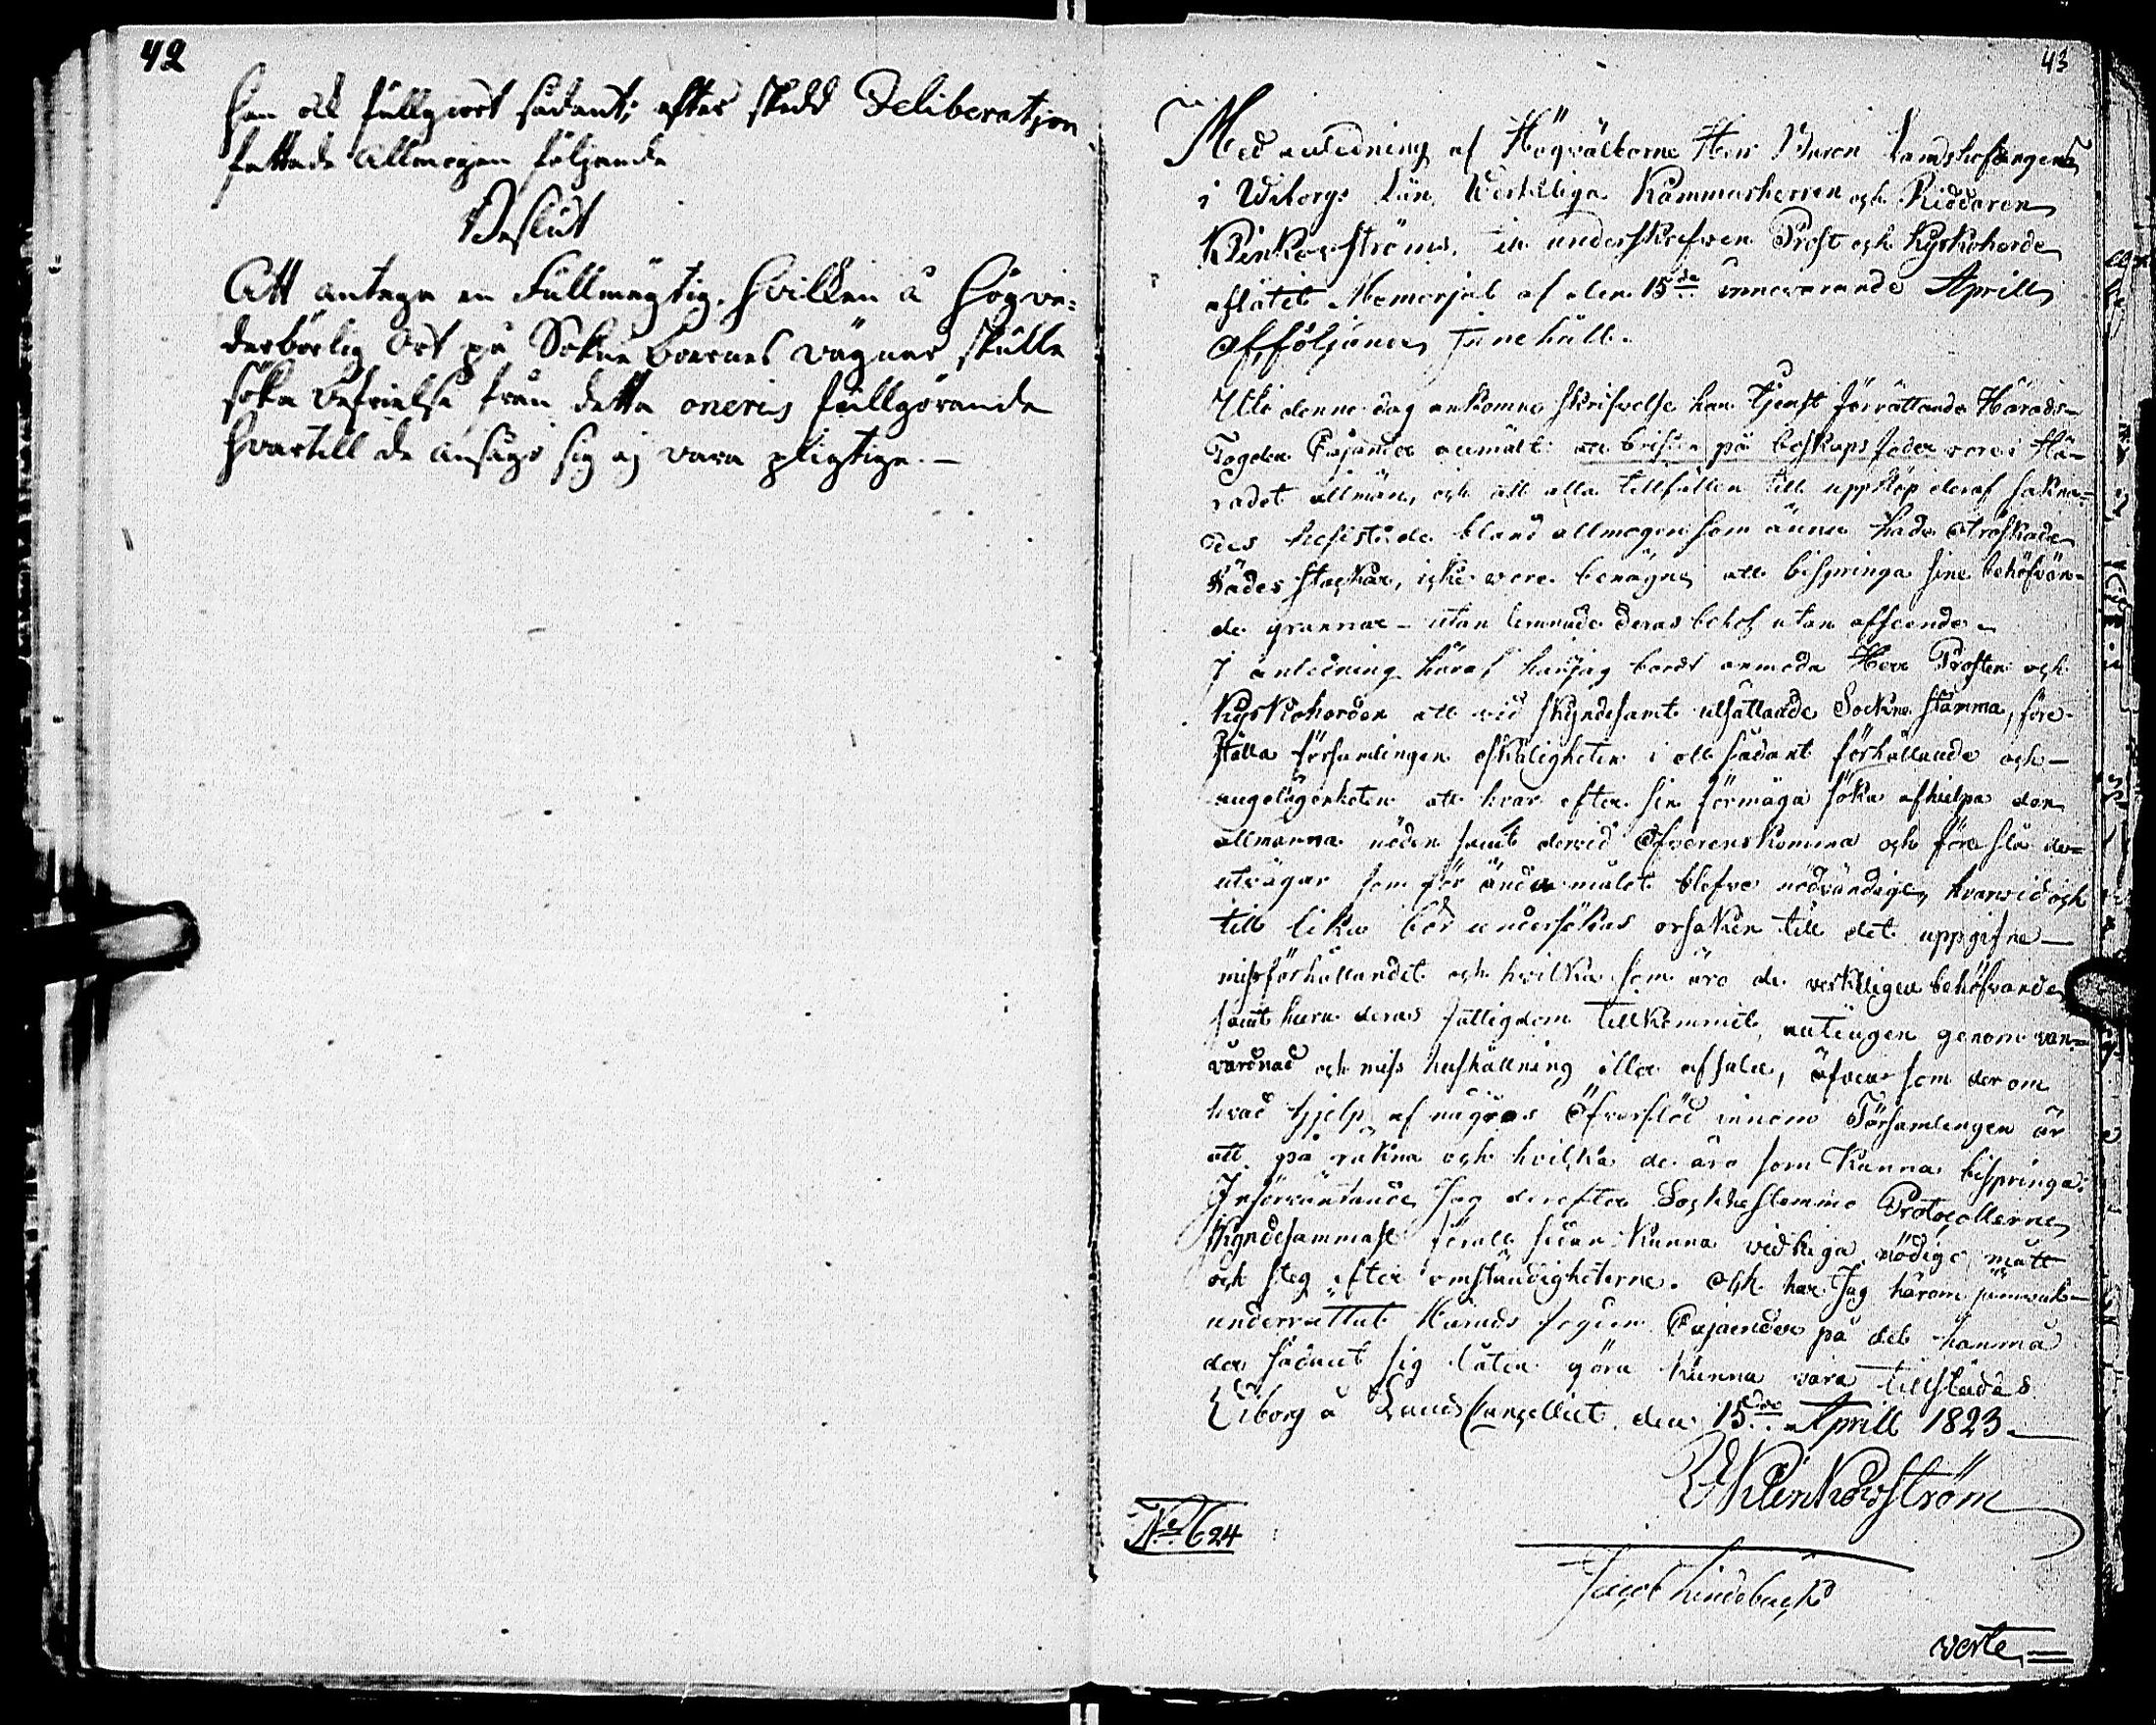 42
han ock fullgiort sådant; efter skedd Deliberation
fattade Allmogen följande
Beslut
Att antaga en Fullmägtig, hvilken å högve-
derbörlig Ort på Sokne boernes vägnar skulle
söka befrielse från detta oneris fullgörande
hvartill de ansågo sig ej vara pligtige.—
43
Med anledning af Högvälborne Herr Baron Landshöfdingens
i Wiborgs Län, Werkeliga Kammarherren och Riddaren
Klinkowströms, til underskrefven Prost och Kyrkoherde
aflåtet Memorial af den 15de innevarande Aprill
af följande Innehåll.
Uti denne dag ankomne skrifvelse har Tjenst förrättande Härads-
Fogden Cajander anmält att bristen på boskaps foder vore i Hä-
radet allmän, och att alla tillfällen till uppköp deraf sakna-
des helst de bland allmogen som ännu hade otröskade
Sädes stackar, icke vore benägne att bispringa sine behöfvan-
de grannar – utan lemnade deras behof utan afseende.
I anledning häraf har jag bordt anmoda Herr Prosten och
Kyrkoherden att vid skyndesamt utsättande Sockne stämma, före-
ställa församlingen oskäligheten i ett sådant förhållande och—
angelägenheten att hvar efter sin förmåga söka afhielpa den
allmänna nöden samt dervid öfverenskomma och föreslå de
utvägar som för ändamålet blefve nödvändige, hvarvid och
till lika bör undersökas orsaken till det uppgifne—
missförhållandet och hvilka som äro de verkeligen behöfvande
samt huru deras fattigdom tillkommit, antingen genom van-
vårdnad och miss hushållning eller afsalu, äfven som derom
hvad hjelp af någras Öfverflöd innom Församlingen är
att på räkna och hvilka de äro som kunna bispringa.
Införväntande Jag derefter Sockne stemmo Protocollerne
skyndesammast för att sedan kunna vidtaga nödige mått
och steg efter omständigheterne. Och har Jag härom jemväl—
underrättat Härads fogden Cajander på det hanma
der sådant sig låter göra kunna vara tillstädes
Wiborg å Lands Cancelliet den 15de Aprill 1823.—
Klinkowström
No 624
Jacob Lindebäck
verte